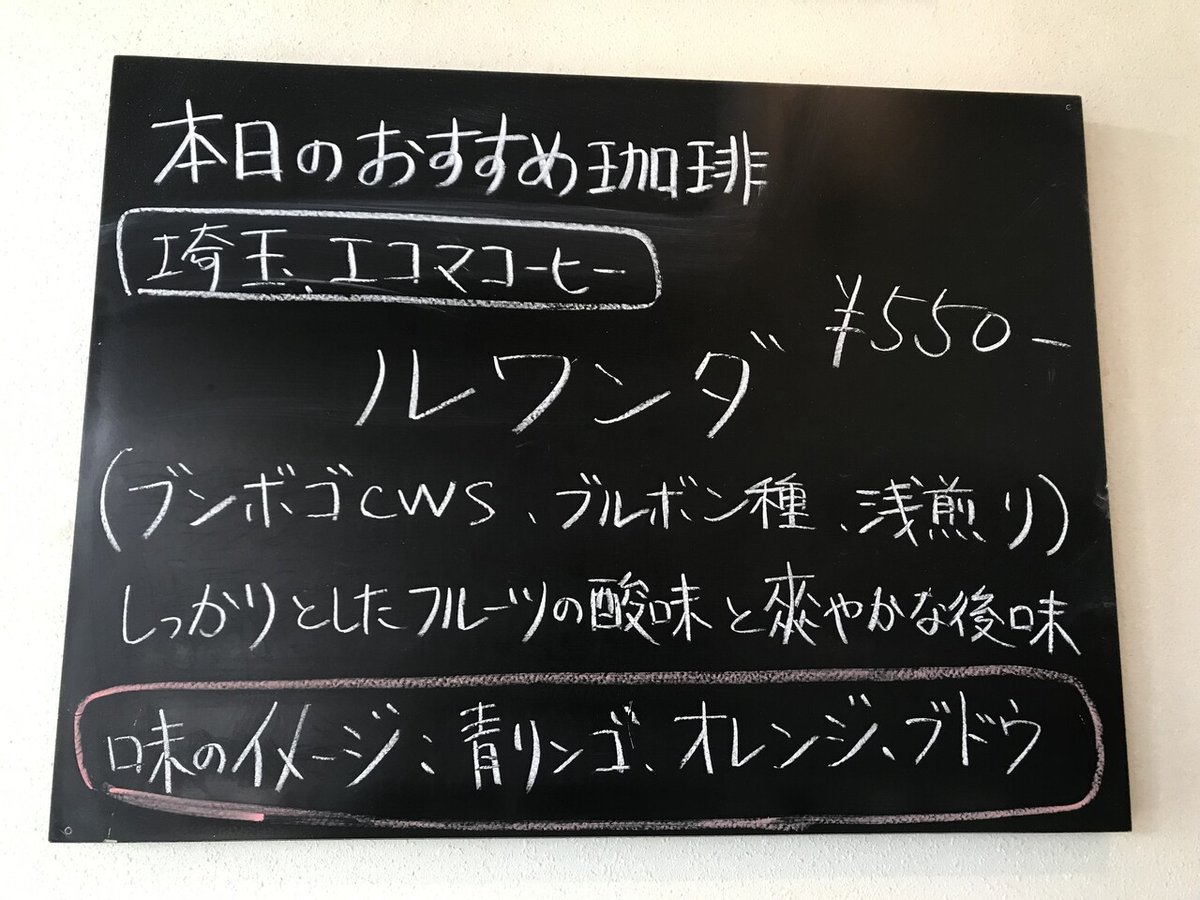 本日のおすすめ珈琲
埼玉、エコマコーヒー
¥550-
ルワンダ
(ブンボゴCWS、ブルボン種、浅煎り)
しっかりとしたフルーツの酸味と爽やかな後味
味のイメージ:青リンゴ、オレンジ、ブドウ